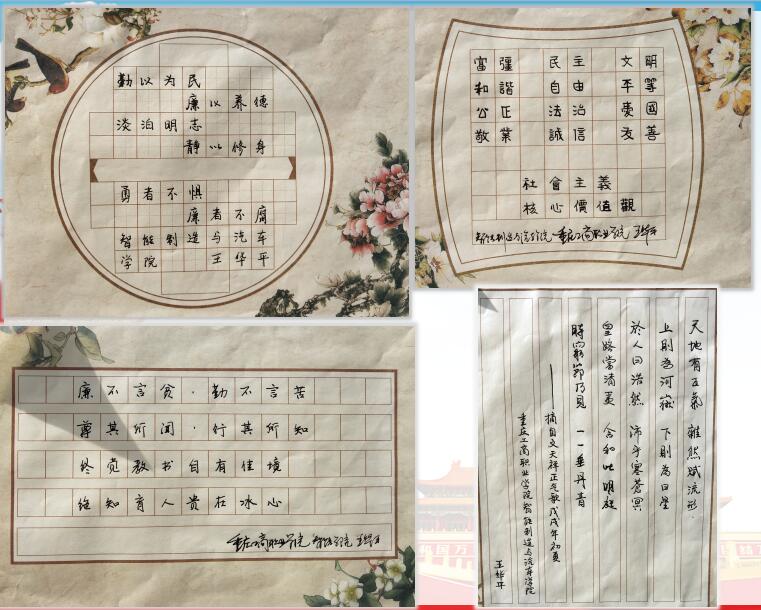 勤以为民
廉以养德
淡泊明志
静以修身
勇者不惧
廉者不腐
智能制造与汽车
学院 王华平
富彊 民主 文明
和諧 自由 平等
公正 法治 愛國
敬業 誠信 友善
社會主義
核心價值觀
重庆工商职业学院 王华平
廉不言贫，勤不言苦
尊其所闻，行其所知
终觉教书自有佳境
知育人贵在冰心
重庆工商职业学院 王华平
天地有正氣 雜然賦流形
上則為河嶽 下則為日星
於人曰浩然 沛乎塞蒼冥
皇路當清夷 含和吐明庭
時窮節乃見 一一垂丹青
——摘自文天祥正气歌戊戌年初夏
重庆工商职业学院智能制造与汽车学院
王华平